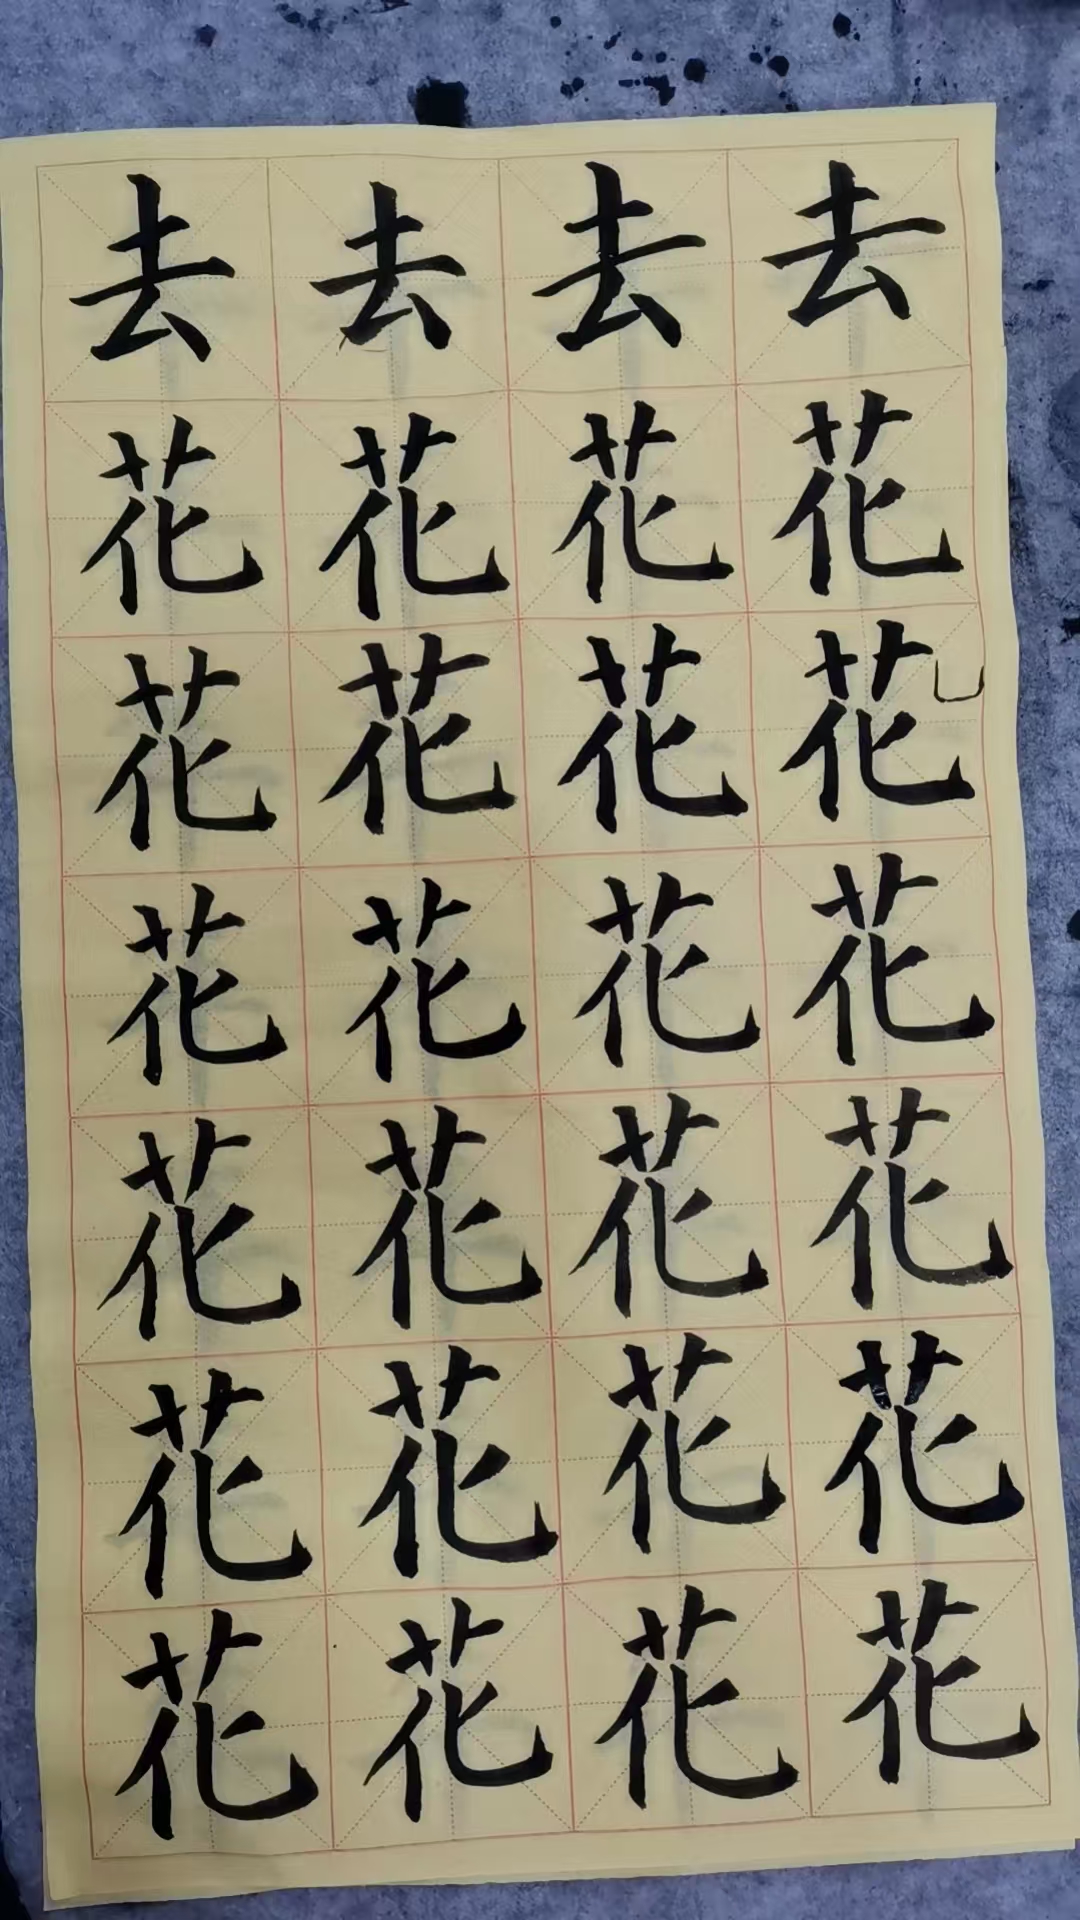 去去去去
花花花花
花花花花
花花花花
花花花花
花花花花
花花花花